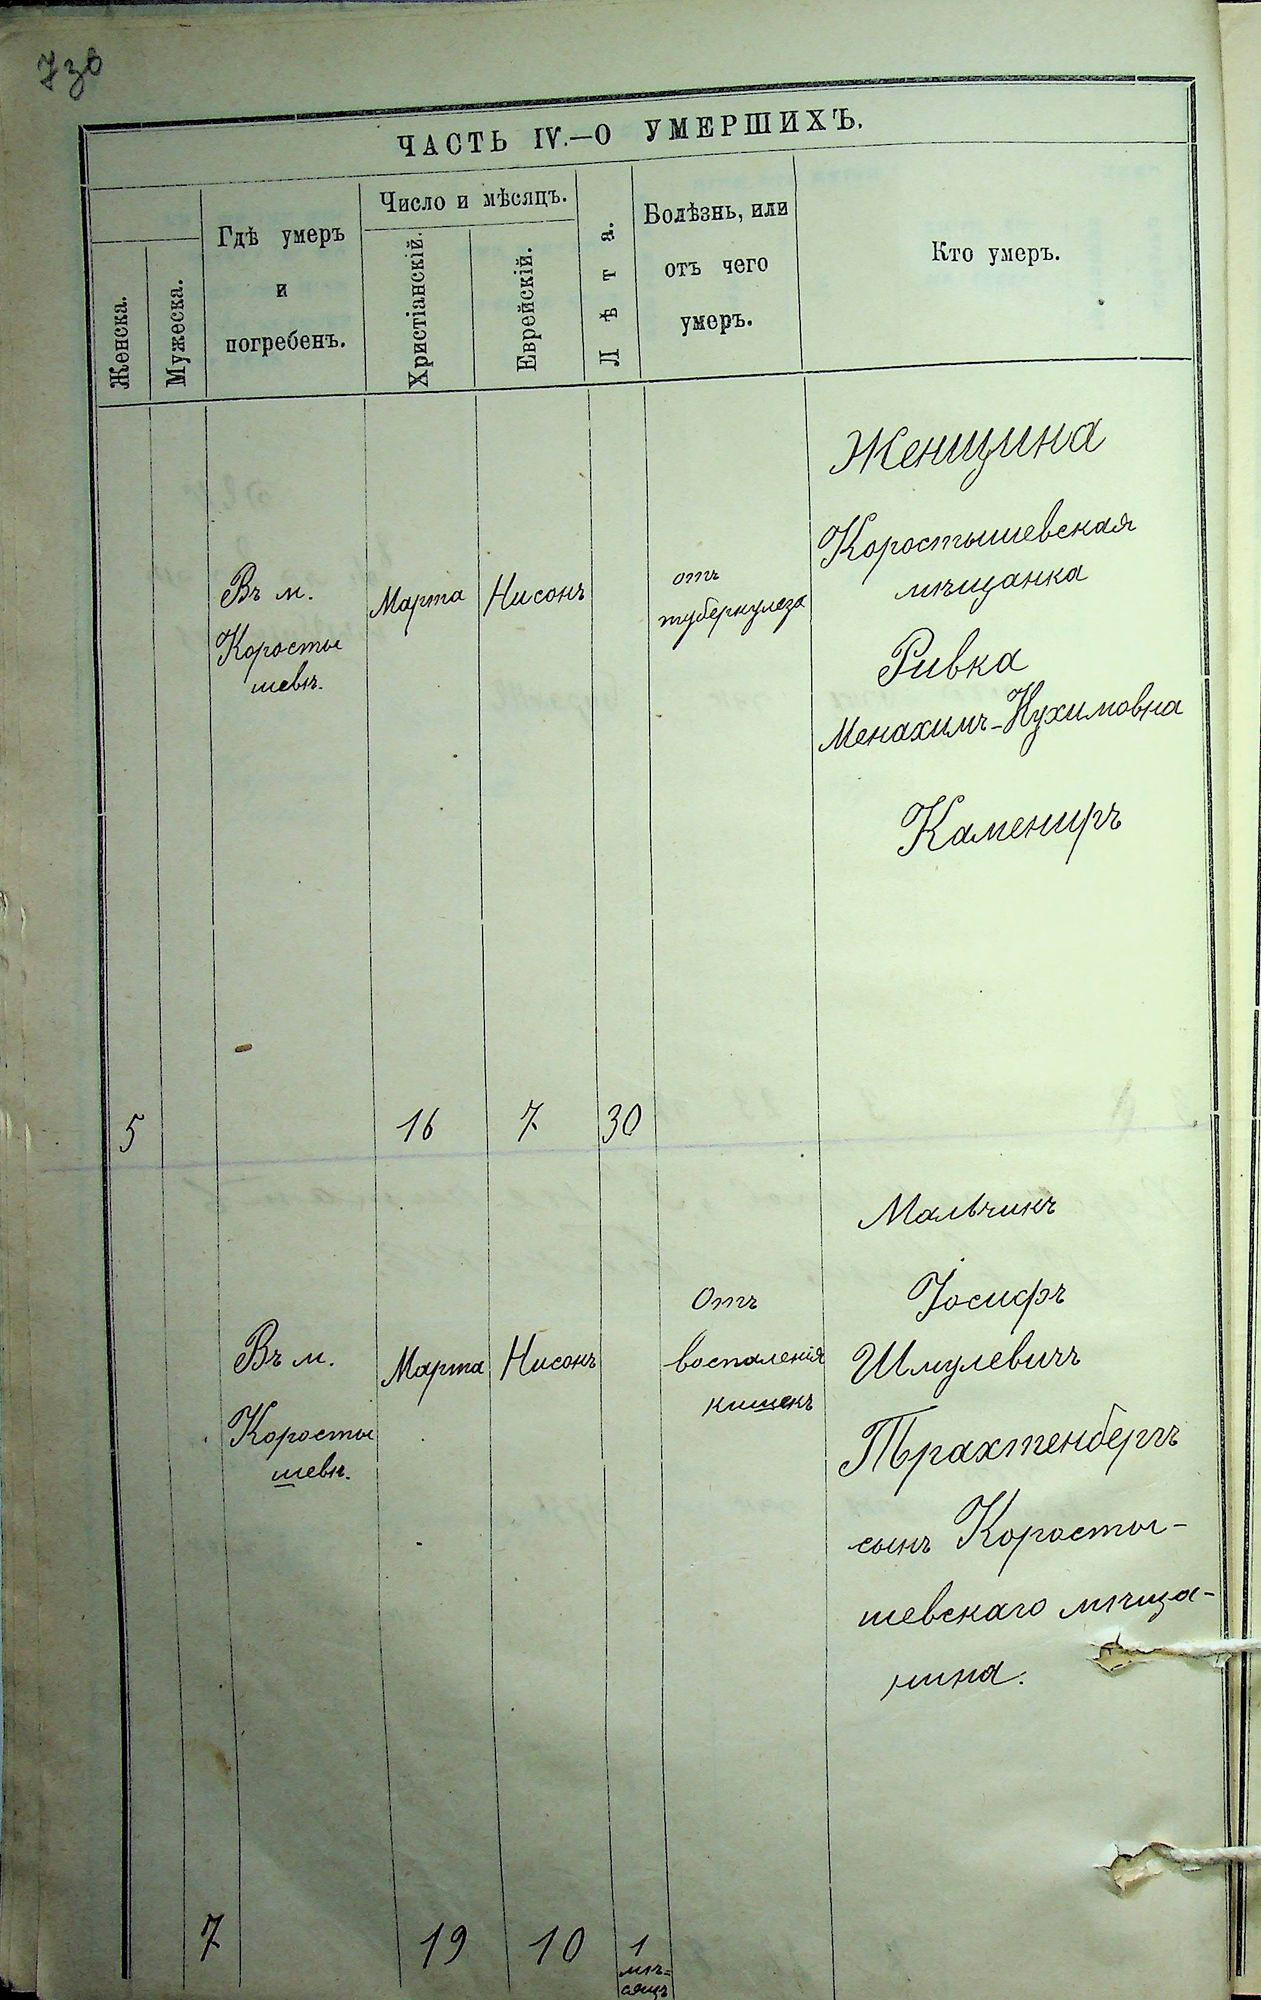 730
ЧАСТЬ IV.—О УМЕРШИХЪ.
Женска.
Мужеска.
Гдѣ умеръ
и
погребенъ.
Число и мѣсяцъ.
Христіанскій.
Еврейскій.
Лѣта.
Болѣзнь, или
отъ чего
умеръ.
Кто умеръ.
Женщина
Коростышевская
мѣщанка
Ривка
Менахимъ-Нухимовна
Камениръ
Въ м.
Коросты
шевѣ.
Марта
Нисонъ
отъ
туберкулеза
5
16
7
30
Мальчикъ
Іосифъ
Шмулевичъ
Трахтенбергъ
сынъ Коросты-
шевскаго мѣща-
нина.
Въ м.
Коросты
шевѣ.
Марта
Нисонъ
Отъ
воспаленія
кишекъ
7
19
10
1
мѣ=
сяцъ